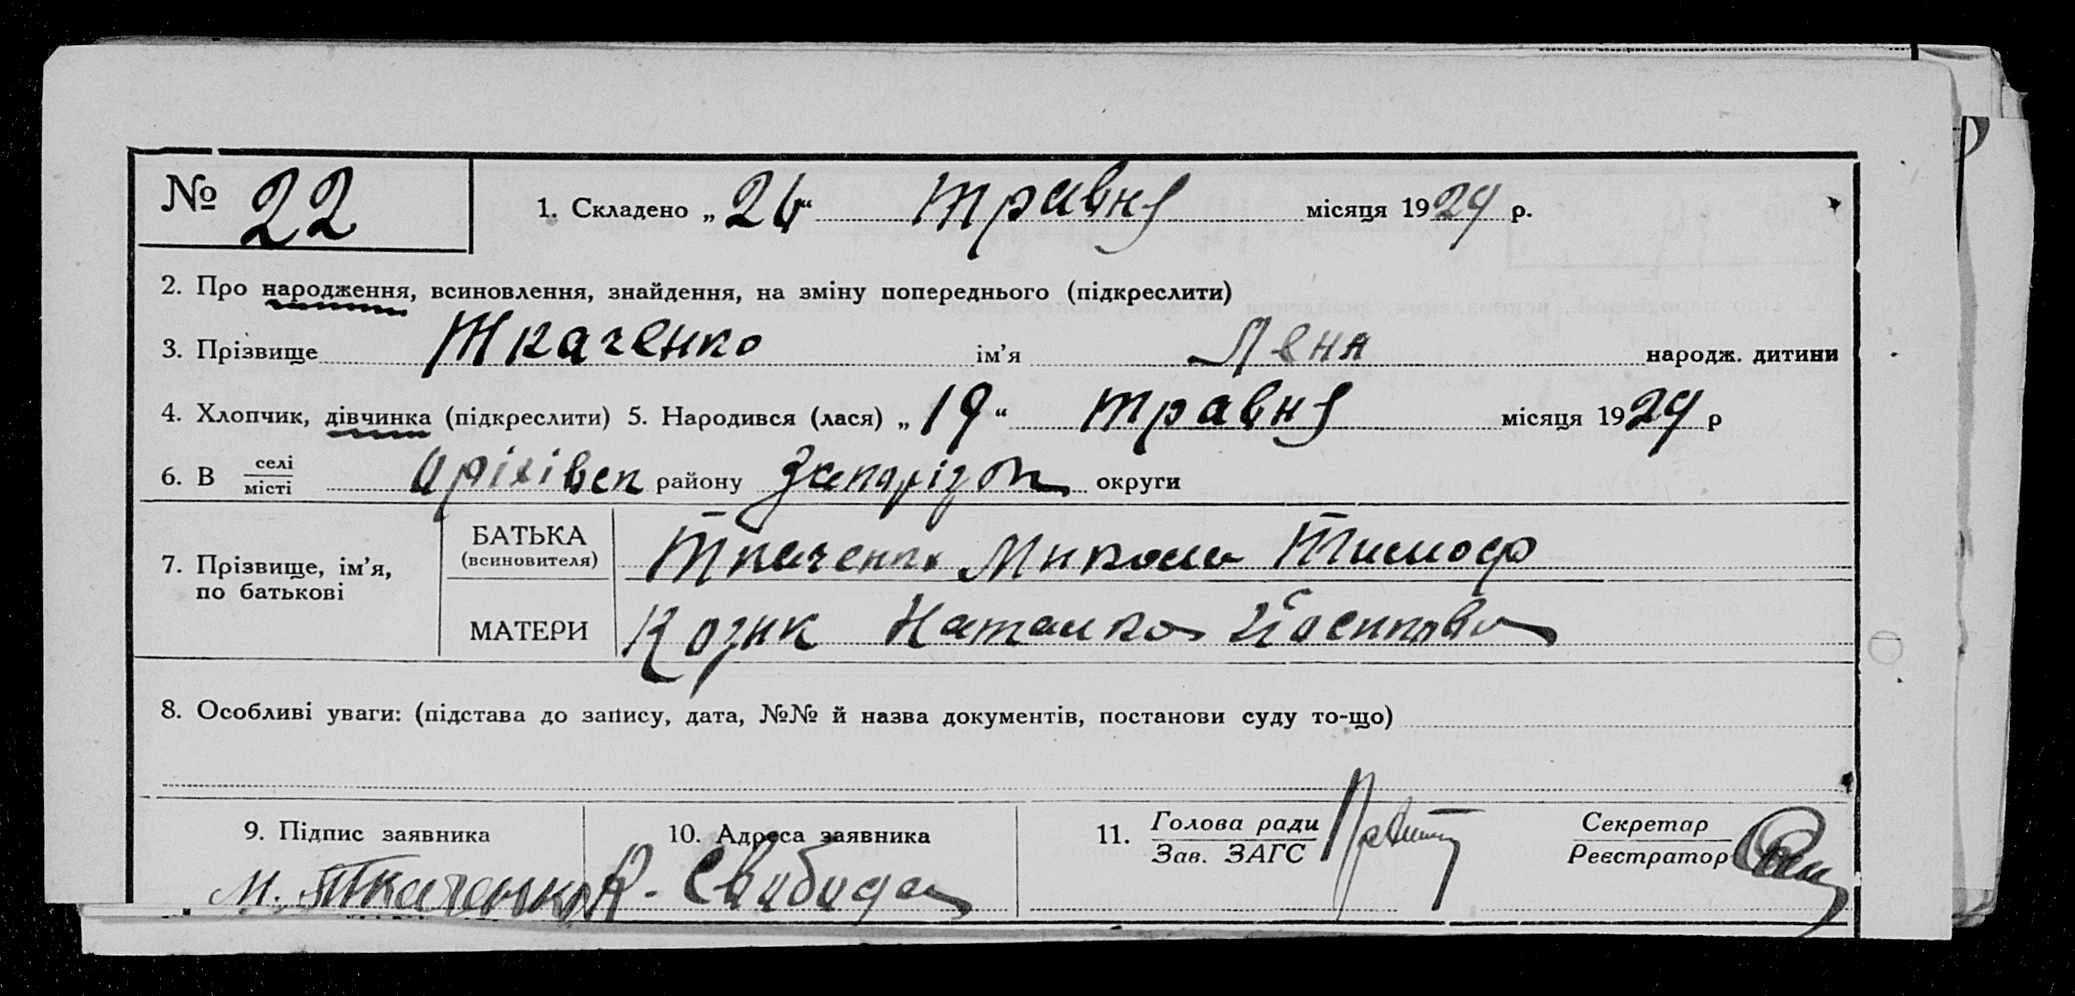 № 22
1. Складено „ 26 “ травня місяця 1929 р.
2. Про народження, всиновлення, знайдення, на зміну попереднього (підкреслити)
3. Прізвище Ткаченко ім’я Лена народж. дитини
4. Хлопчик, дівчинка (підкреслити) 5. Народився (лася) „ 19 “ травня місяця 1929 р
6. В селі місті Оріхівсп району Запорізьк округи
7. Прізвище, ім’я, по батькові
БАТЬКА (всиновителя) Ткаченко Микола Тимоф
МАТЕРИ Козик Наталка Йосипівна
8. Особливі уваги: (підстава до запису, дата, №№ й назва документів, постанови суду то-що)
9. Підпис заявника 10. Адреса заявника 11. Голова ради Зав. ЗАГС Секретар Реєстратор
М. Ткаченко К. Свобода